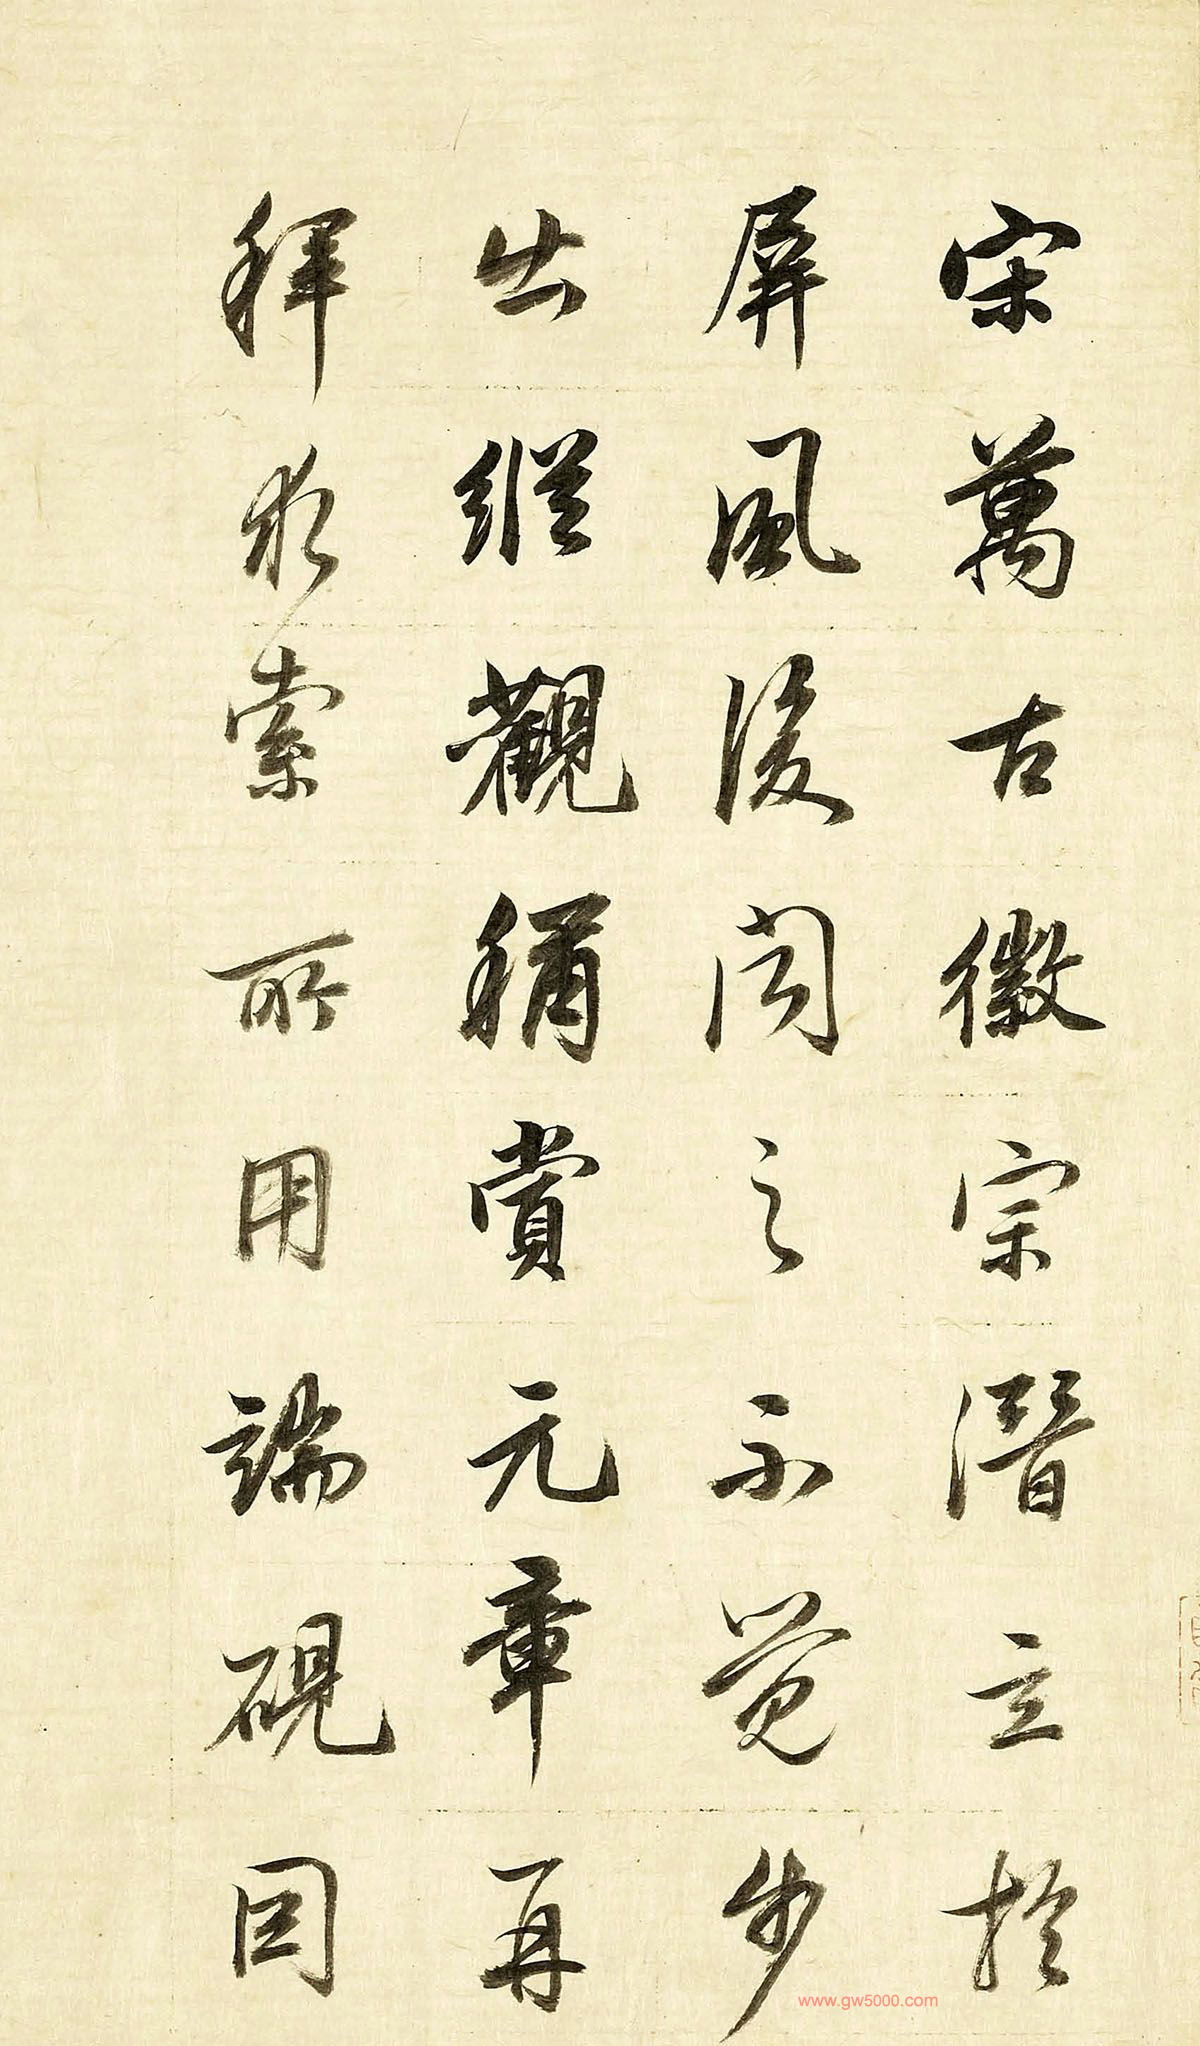 宋萬古徽宗潛立於
屏風後聞之不覺步
出縱觀稱賞元章再
拜求索所用端硯因
www.gw5000.com